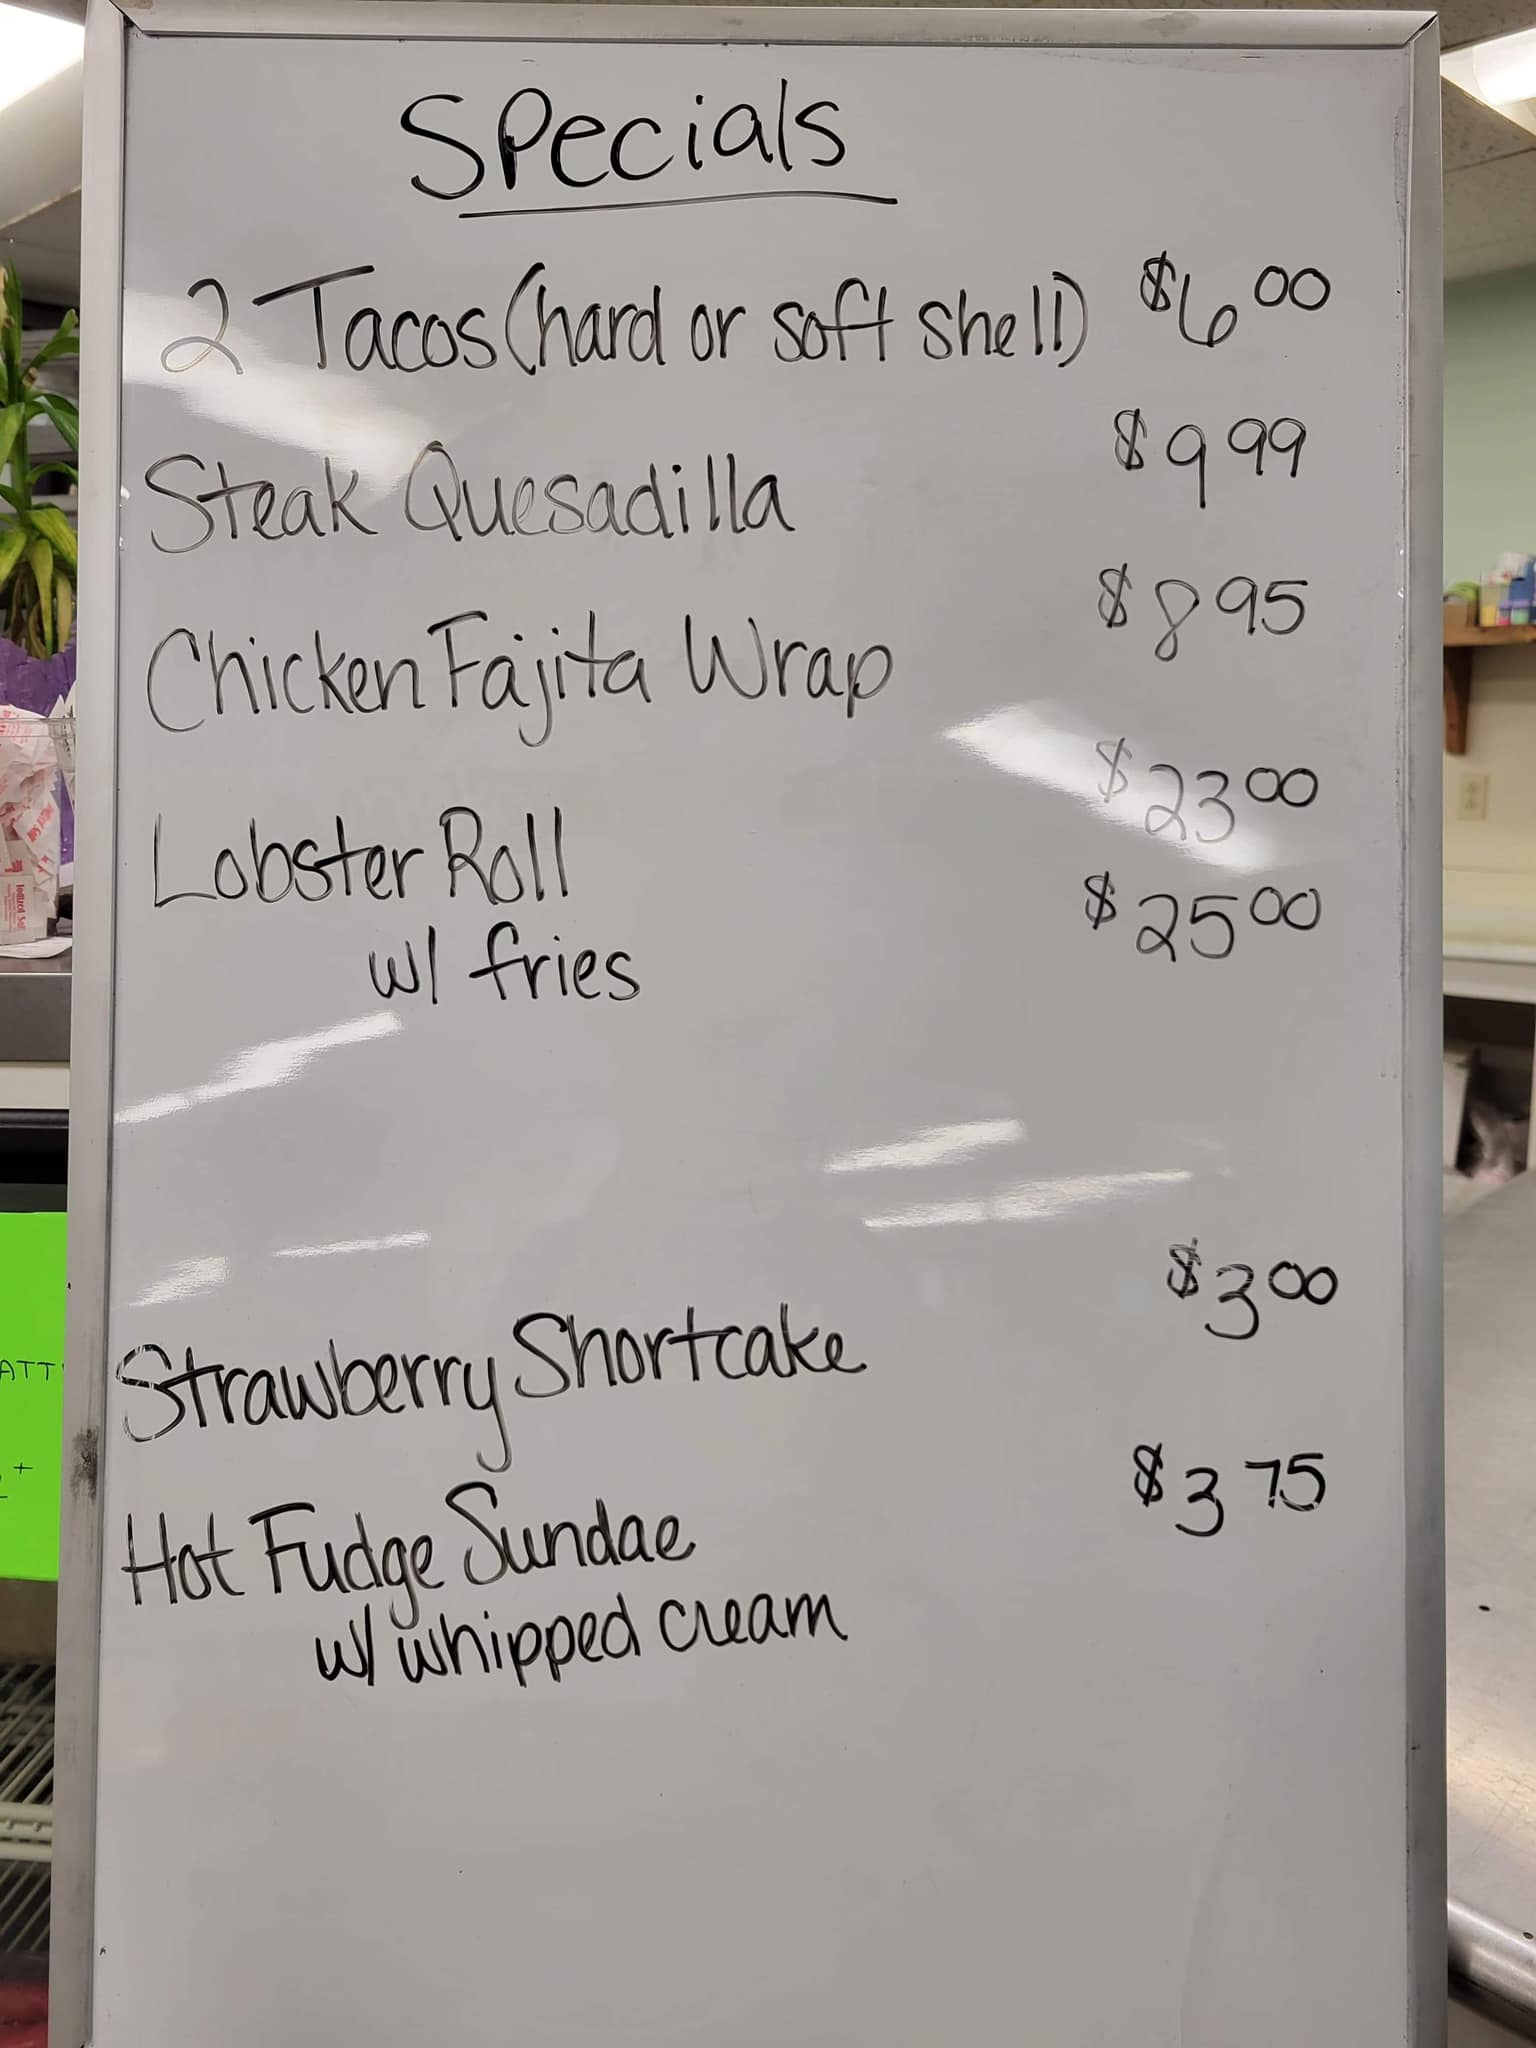 Specials
2 Tacos (hard or soft shell) $6.00
Steak Quesadilla $9.99
Chicken Fajita Wrap $8.95
Lobster Roll $23.00
w/ fries $25.00
Strawberry Shortcake $3.00
Hot Fudge Sundae $3.75
w/ whipped cream
ATT
+
Iodized Salt